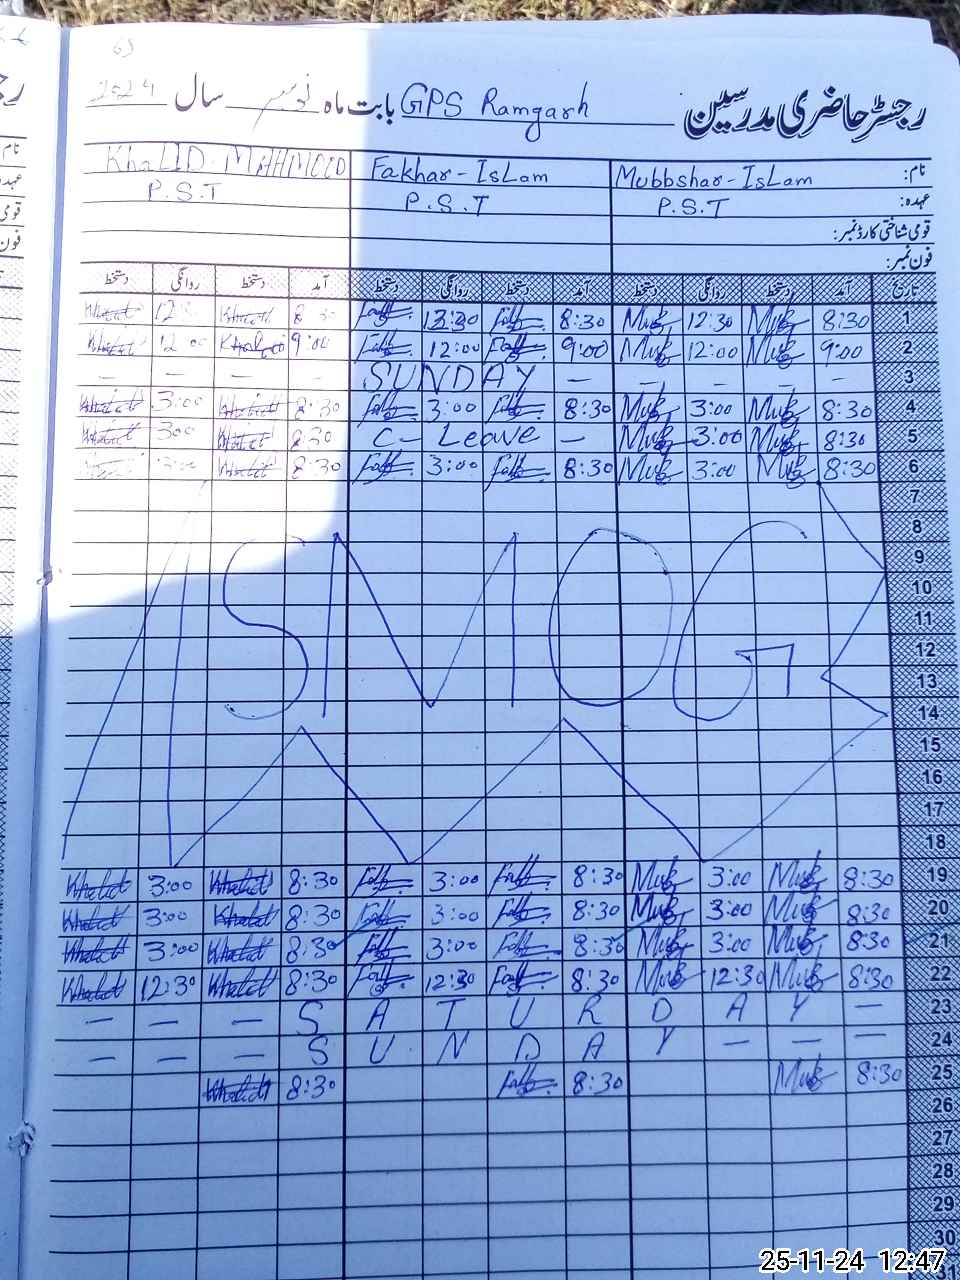 63
رجسٹر حاضری مدرسین GPS Ramgarh بابت ماہ نومبر سال 2024
نام: Mubbshar-IsLam Fakhar-IsLam KhaLID-MAHMOOD
عہدہ: P.S.T P.S.T P.S.T
قومی شناختی کارڈ نمبر:
فون نمبر:
تاریخ آمد دستخط روانگی دستخط آمد دستخط روانگی دستخط آمد دستخط روانگی دستخط
1 8:30 Mub 12:30 Mub 8:30 12:30 8:30 Khalid 12 Khalid
2 9:00 Mub 12:00 Mub 9:00 12:00 9:00 Khalid 12:00 Khalid
3 — — — — — SUNDAY — — — —
4 8:30 Mub 3:00 Mub 8:30 3:00 8:30 Khalid 3:00 Khalid
5 8:30 Mub 3:00 Mub C- Leave — 8:30 Khalid 3:00 Khalid
6 8:30 Mub 3:00 Mub 8:30 3:00 8:30 Khalid 3:00
7
8
9
10
11
SMOG
12
13
14
15
16
17
18
19 8:30 Mub 3:00 Mub 8:30 3:00 8:30 Khalid 3:00 Khalid
20 8:30 Mub 3:00 Mub 8:30 3:00 8:30 Khalid 3:00 Khalid
21 8:30 Mub 3:00 Mub 8:30 3:00 8:30 Khalid 3:00 Khalid
22 8:30 Mub 12:30 Mub 8:30 12:30 8:30 Khalid 12:30 Khalid
23 — — — S A T U R D A Y —
24 — — — S U N D A Y — — —
25 8:30 Mub 8:30 8:30 Khalid
26
27
28
29
30
31
25-11-24 12:47